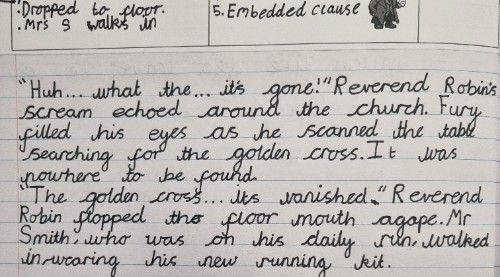 Dropped to floor.
. Mrs S walks in
5. Embedded clause
"Huh... what the... it's gone!" Reverend Robin's
scream echoed around the church. Fury
filled his eyes as he scanned the table
searching for the golden cross. It was
nowhere to be found.
"The golden cross... its vanished." Reverend
Robin flopped the floor mouth agape. Mr
Smith, who was on his daily run, walked
in, wearing his new running kit.